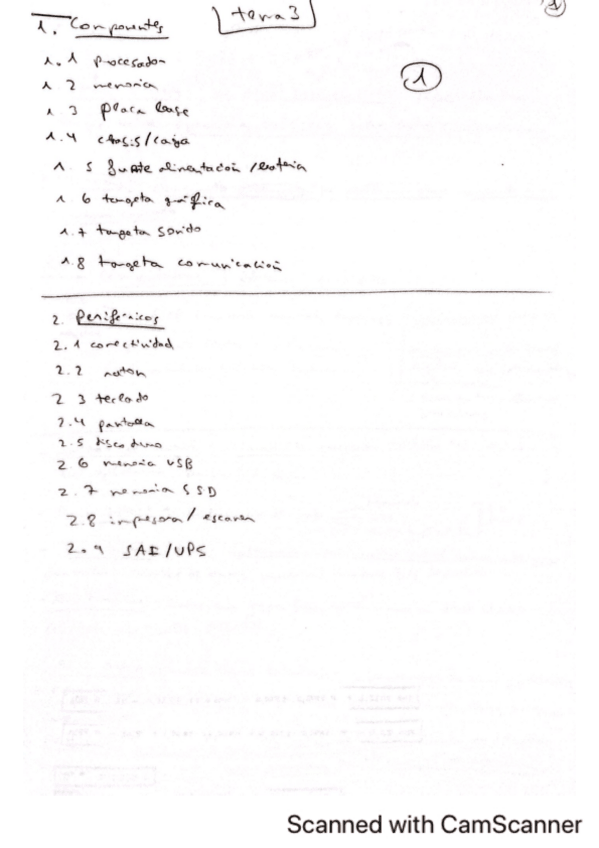 tema 3
1
1. Componentes
1
1.1 procesador
1 2 memoria
1 3 placa base
1.4 chasis/caja
1. 5 fuente alimentación / batería
1. 6 targeta gráfica
1.7 targeta sonido
1.8 targeta comunicación
2. Periféricos
2.1 conectividad
2.2 raton
2 3 teclado
2.4 pantalla
2.5 disco duro
2.6 memoria USB
2.7 memoria SSD
2.8 impresora/ escaner
2.9 SAI/UPS
Scanned with CamScanner